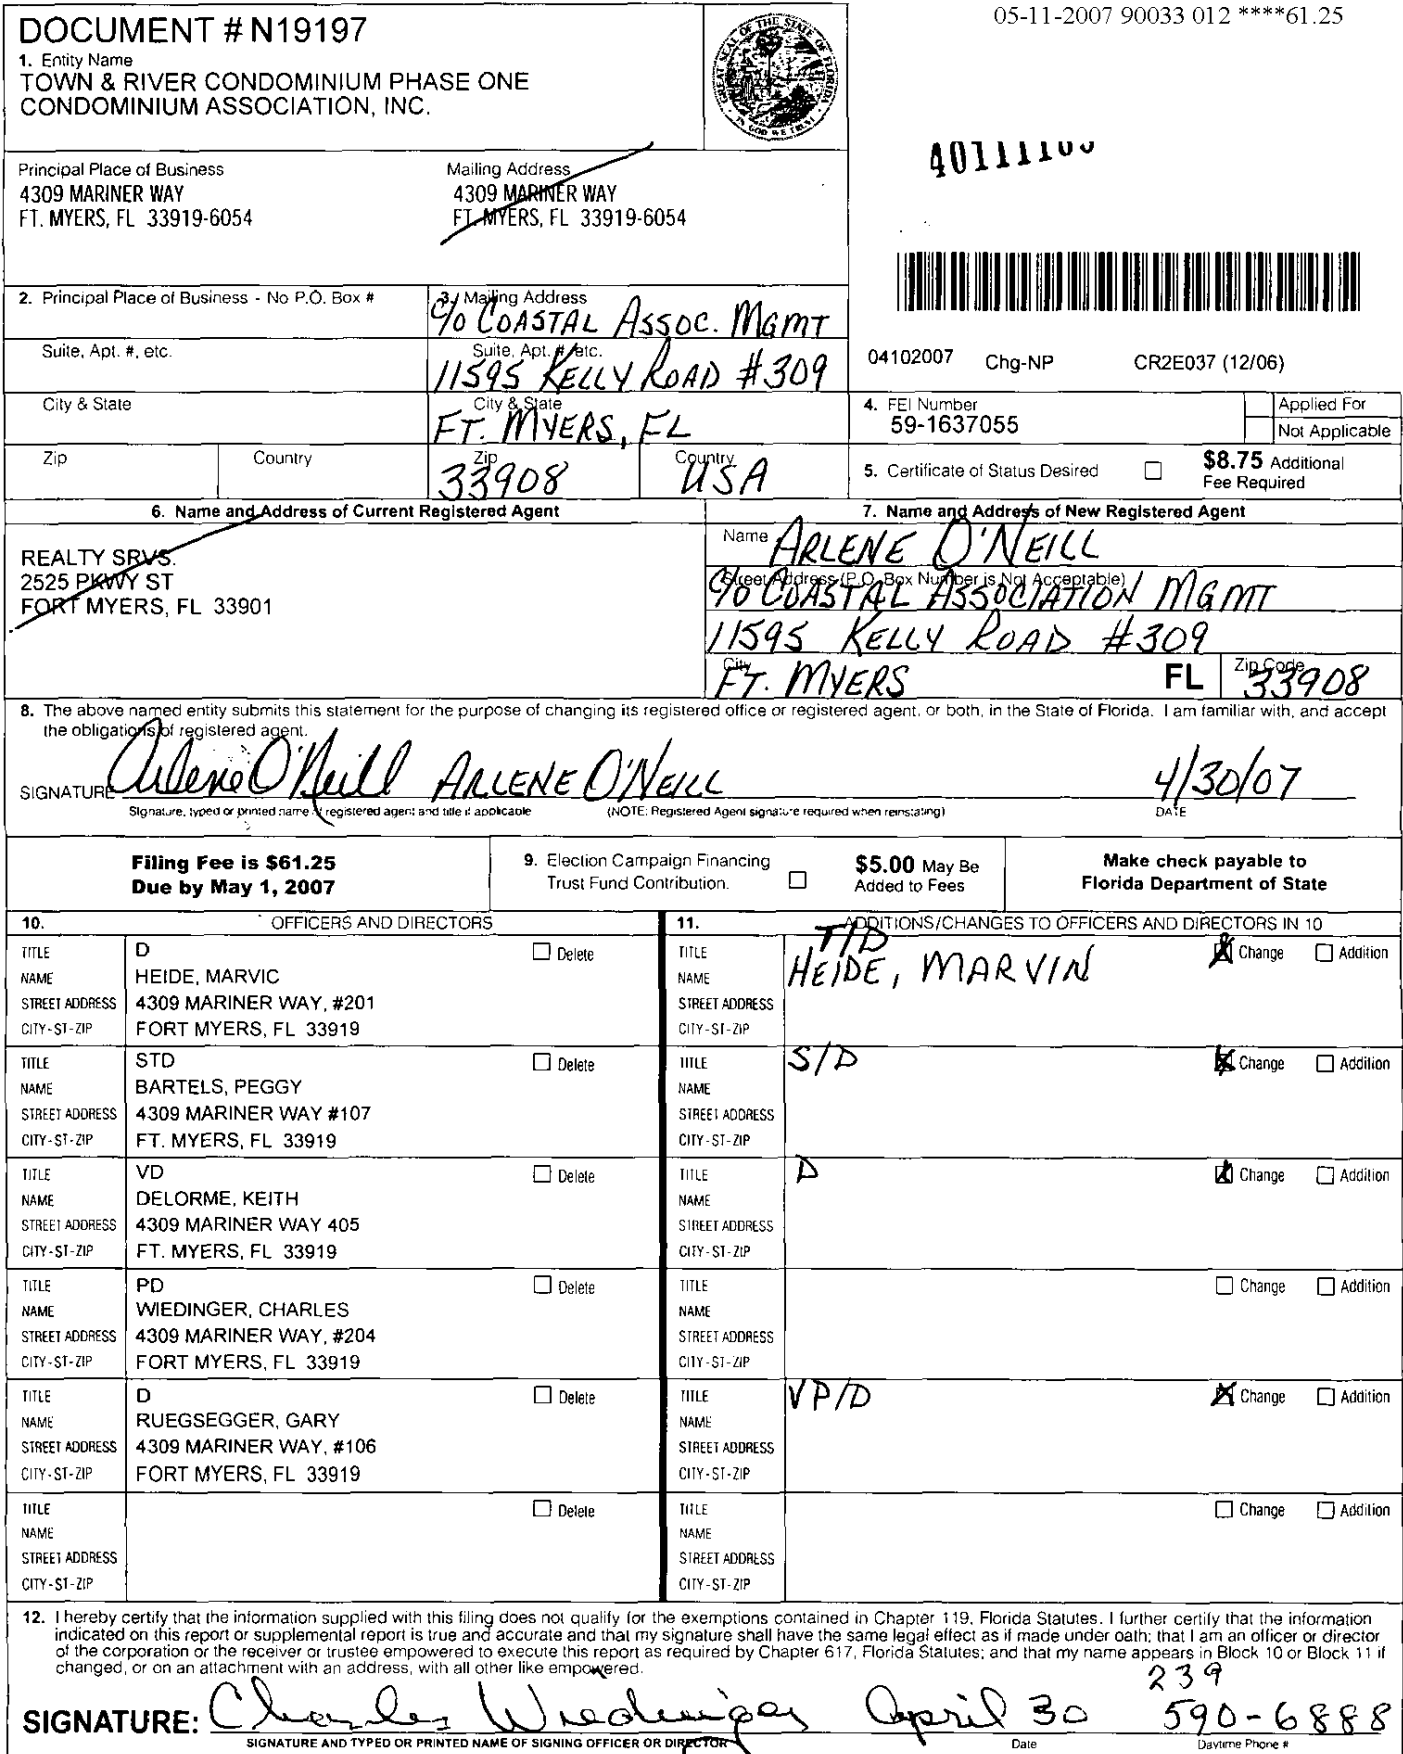 DOCUMENT # N19197
1. Entity Name
TOWN & RIVER CONDOMINIUM PHASE ONE
CONDOMINIUM ASSOCIATION, INC.
GREAT SEAL OF THE STATE OF FLORIDA
IN GOD WE TRUST
05-11-2007 90033 012 ****61.25
Principal Place of Business
4309 MARINER WAY
FT. MYERS, FL 33919-6054
Mailing Address
4309 MARINER WAY
FT. MYERS, FL 33919-6054
2. Principal Place of Business - No P.O. Box #
3. Mailing Address
C/O COASTAL ASSOC. MGMT
Suite, Apt. #, etc.
Suite, Apt. #, etc.
11595 KELLY ROAD #309
04102007 Chg-NP CR2E037 (12/06)
City & State
City & State
FT. MYERS, FL
4. FEI Number
59-1637055
Applied For
Not Applicable
Zip
Country
Zip
33908
Country
USA
5. Certificate of Status Desired
$8.75 Additional
Fee Required
6. Name and Address of Current Registered Agent
REALTY SRVS.
2525 PKWY ST
FORT MYERS, FL 33901
7. Name and Address of New Registered Agent
Name ARLENE O'NEILL
Street Address (P.O. Box Number is Not Acceptable)
C/O COASTAL ASSOCIATION MGMT
11595 KELLY ROAD #309
City FT. MYERS FL Zip Code 33908
8. The above named entity submits this statement for the purpose of changing its registered office or registered agent, or both, in the State of Florida. I am familiar with, and accept
the obligations of registered agent.
SIGNATURE Arlene O'Neill ARLENE O'NEILL 4/30/07
Signature, typed or printed name of registered agent and title if applicable (NOTE: Registered Agent signature required when reinstating) DATE
Filing Fee is $61.25
Due by May 1, 2007
9. Election Campaign Financing
Trust Fund Contribution.
$5.00 May Be
Added to Fees
Make check payable to
Florida Department of State
10. OFFICERS AND DIRECTORS
11. ADDITIONS/CHANGES TO OFFICERS AND DIRECTORS IN 10
TITLE D Delete
NAME HEIDE, MARVIC
STREET ADDRESS 4309 MARINER WAY, #201
CITY-ST-ZIP FORT MYERS, FL 33919
TITLE T/D Change Addition
NAME HEIDE, MARVIN
STREET ADDRESS
CITY-ST-ZIP
TITLE STD Delete
NAME BARTELS, PEGGY
STREET ADDRESS 4309 MARINER WAY #107
CITY-ST-ZIP FT. MYERS, FL 33919
TITLE S/D Change Addition
NAME
STREET ADDRESS
CITY-ST-ZIP
TITLE VD Delete
NAME DELORME, KEITH
STREET ADDRESS 4309 MARINER WAY 405
CITY-ST-ZIP FT. MYERS, FL 33919
TITLE D Change Addition
NAME
STREET ADDRESS
CITY-ST-ZIP
TITLE PD Delete
NAME WIEDINGER, CHARLES
STREET ADDRESS 4309 MARINER WAY, #204
CITY-ST-ZIP FORT MYERS, FL 33919
TITLE Change Addition
NAME
STREET ADDRESS
CITY-ST-ZIP
TITLE D Delete
NAME RUEGSEGGER, GARY
STREET ADDRESS 4309 MARINER WAY, #106
CITY-ST-ZIP FORT MYERS, FL 33919
TITLE VP/D Change Addition
NAME
STREET ADDRESS
CITY-ST-ZIP
TITLE Delete
NAME
STREET ADDRESS
CITY-ST-ZIP
TITLE Change Addition
NAME
STREET ADDRESS
CITY-ST-ZIP
12. I hereby certify that the information supplied with this filing does not qualify for the exemptions contained in Chapter 119, Florida Statutes. I further certify that the information
indicated on this report or supplemental report is true and accurate and that my signature shall have the same legal effect as if made under oath; that I am an officer or director
of the corporation or the receiver or trustee empowered to execute this report as required by Chapter 617, Florida Statutes; and that my name appears in Block 10 or Block 11 if
changed, or on an attachment with an address, with all other like empowered.
239
SIGNATURE: Charles Wiedinger April 30 590-6888
SIGNATURE AND TYPED OR PRINTED NAME OF SIGNING OFFICER OR DIRECTOR Date Daytime Phone #